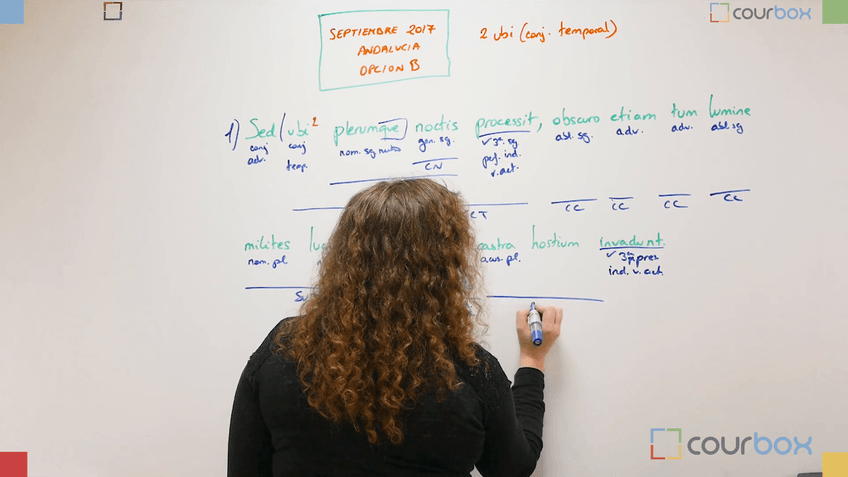 courbox
SEPTIEMBRE 2017
ANDALUCIA
OPCION B
2 ubi (conj. temporal)
1) Sed (ubi² plerumque) noctis processit, obscuro etiam tum lumine
conj adv. conj temp. nom. sg neutro gen. sg. ✓3ª sg perf. ind. v. act. abl. sg. adv. adv. abl. sg
CN
CT CC CC CC CC
milites castra hostium invadunt
nom. pl acus. pl. ✓3ª pl pres ind. v. act.
courbox